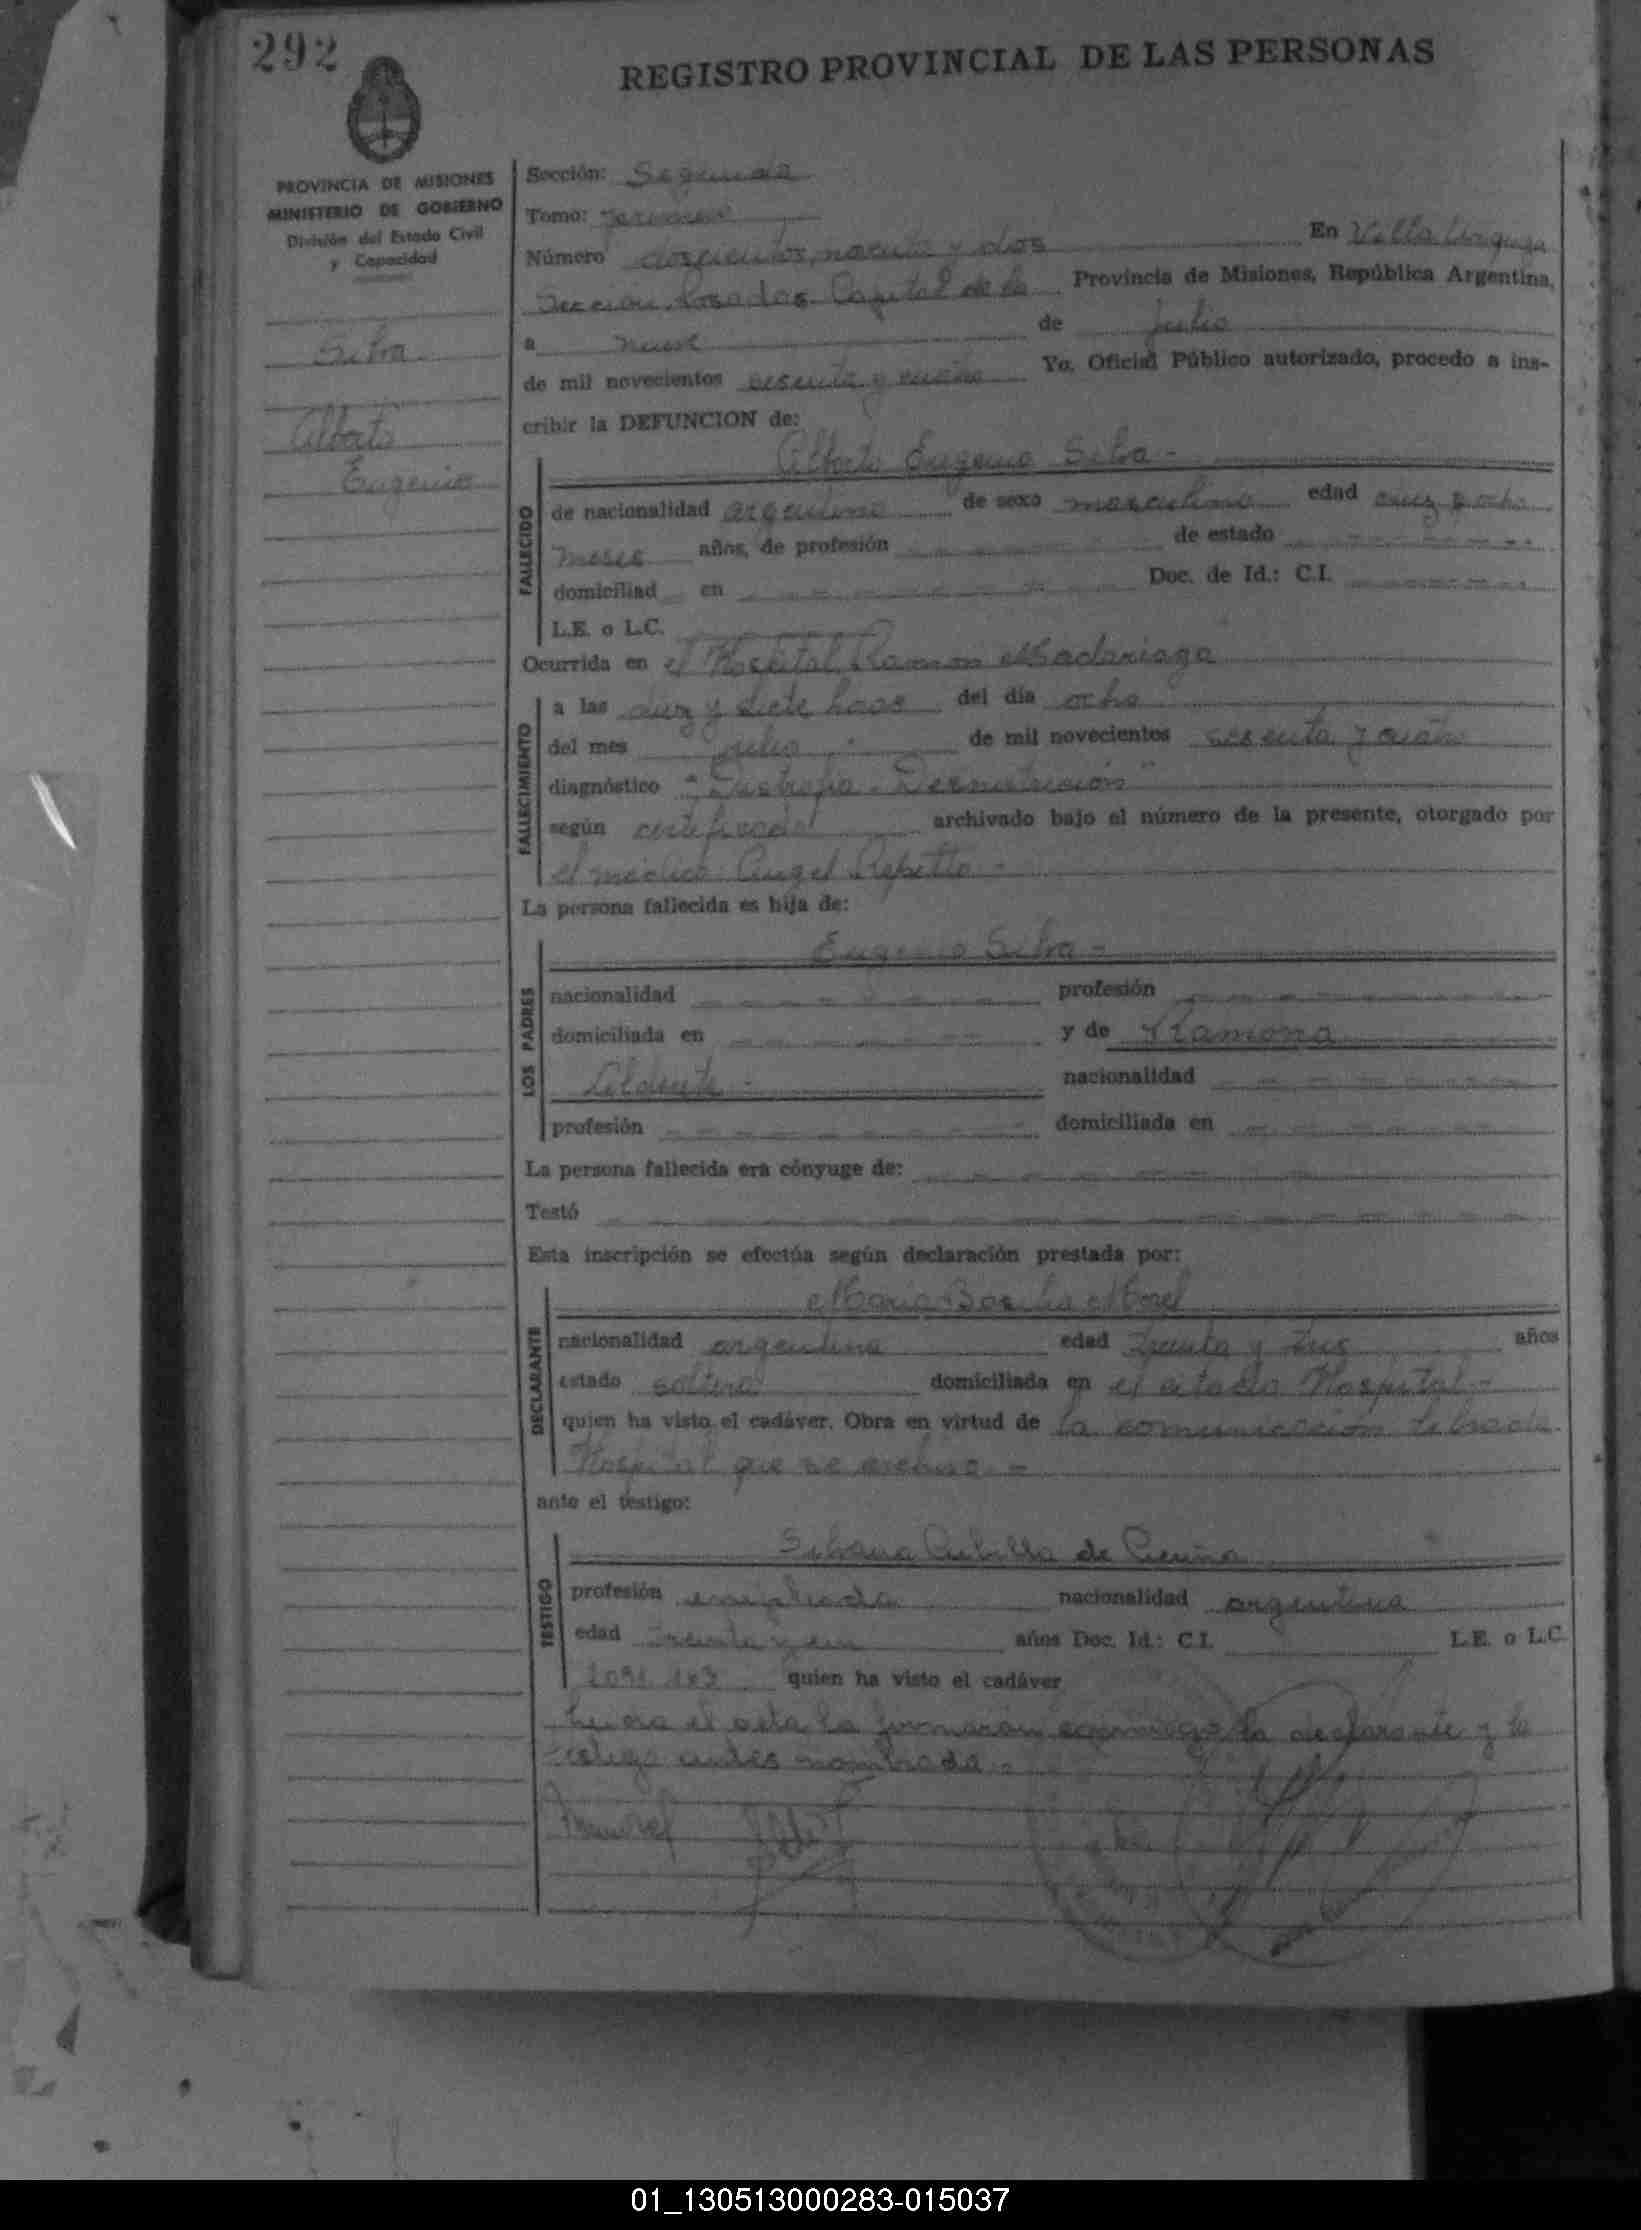 292
REGISTRO PROVINCIAL DE LAS PERSONAS
PROVINCIA DE MISIONES
MINISTERIO DE GOBIERNO
División del Estado Civil
y Capacidad
Silva
Alberto
Eugenio
Sección: Segunda
Tomo: primero
Número doscientos noventa y dos En Villa Urquiza
Sección Posadas Capital de la Provincia de Misiones, República Argentina,
a nueve de julio
de mil novecientos sesenta y cuatro Yo, Oficial Público autorizado, procedo a ins-
cribir la DEFUNCION de:
Alberto Eugenio Silva -
FALLECIDO
de nacionalidad argentino de sexo masculino edad diez y ocho
meses años, de profesión de estado
domiciliad en Doc. de Id.: C.I.
L.E. o L.C.
Ocurrida en el Hospital Ramon Madariaga
FALLECIMIENTO
a las diez y siete horas del día ocho
del mes julio de mil novecientos sesenta y cuatro
diagnóstico "Distrofia - Desnutrición"
según certificado archivado bajo el número de la presente, otorgado por
el médico: Angel Repetto -
La persona fallecida es hija de:
LOS PADRES
Eugenio Silva -
nacionalidad profesión
domiciliada en y de Ramona
nacionalidad
profesión domiciliada en
La persona fallecida era cónyuge de:
Testó
Esta inscripción se efectúa según declaración prestada por:
DECLARANTE
Maria Basilia Morel
nacionalidad argentina edad treinta y tres años
estado soltera domiciliada en el citado Hospital -
quien ha visto el cadáver. Obra en virtud de la comunicación librada
Hospital que se archiva -
ante el testigo:
TESTIGO
Silvana Cubilla de
profesión empleada nacionalidad argentina
edad treinta y un años Doc. Id.: C.I. L.E. o L.C.
quien ha visto el cadáver
el acta la firmaron conmigo la declarante y la
testigo antes nombrada -
01_130513000283-015037